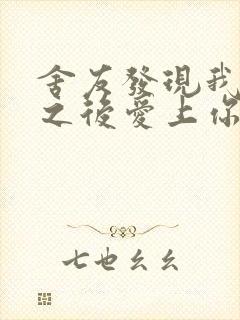 舍友發現我
之後愛上你
七也幺幺